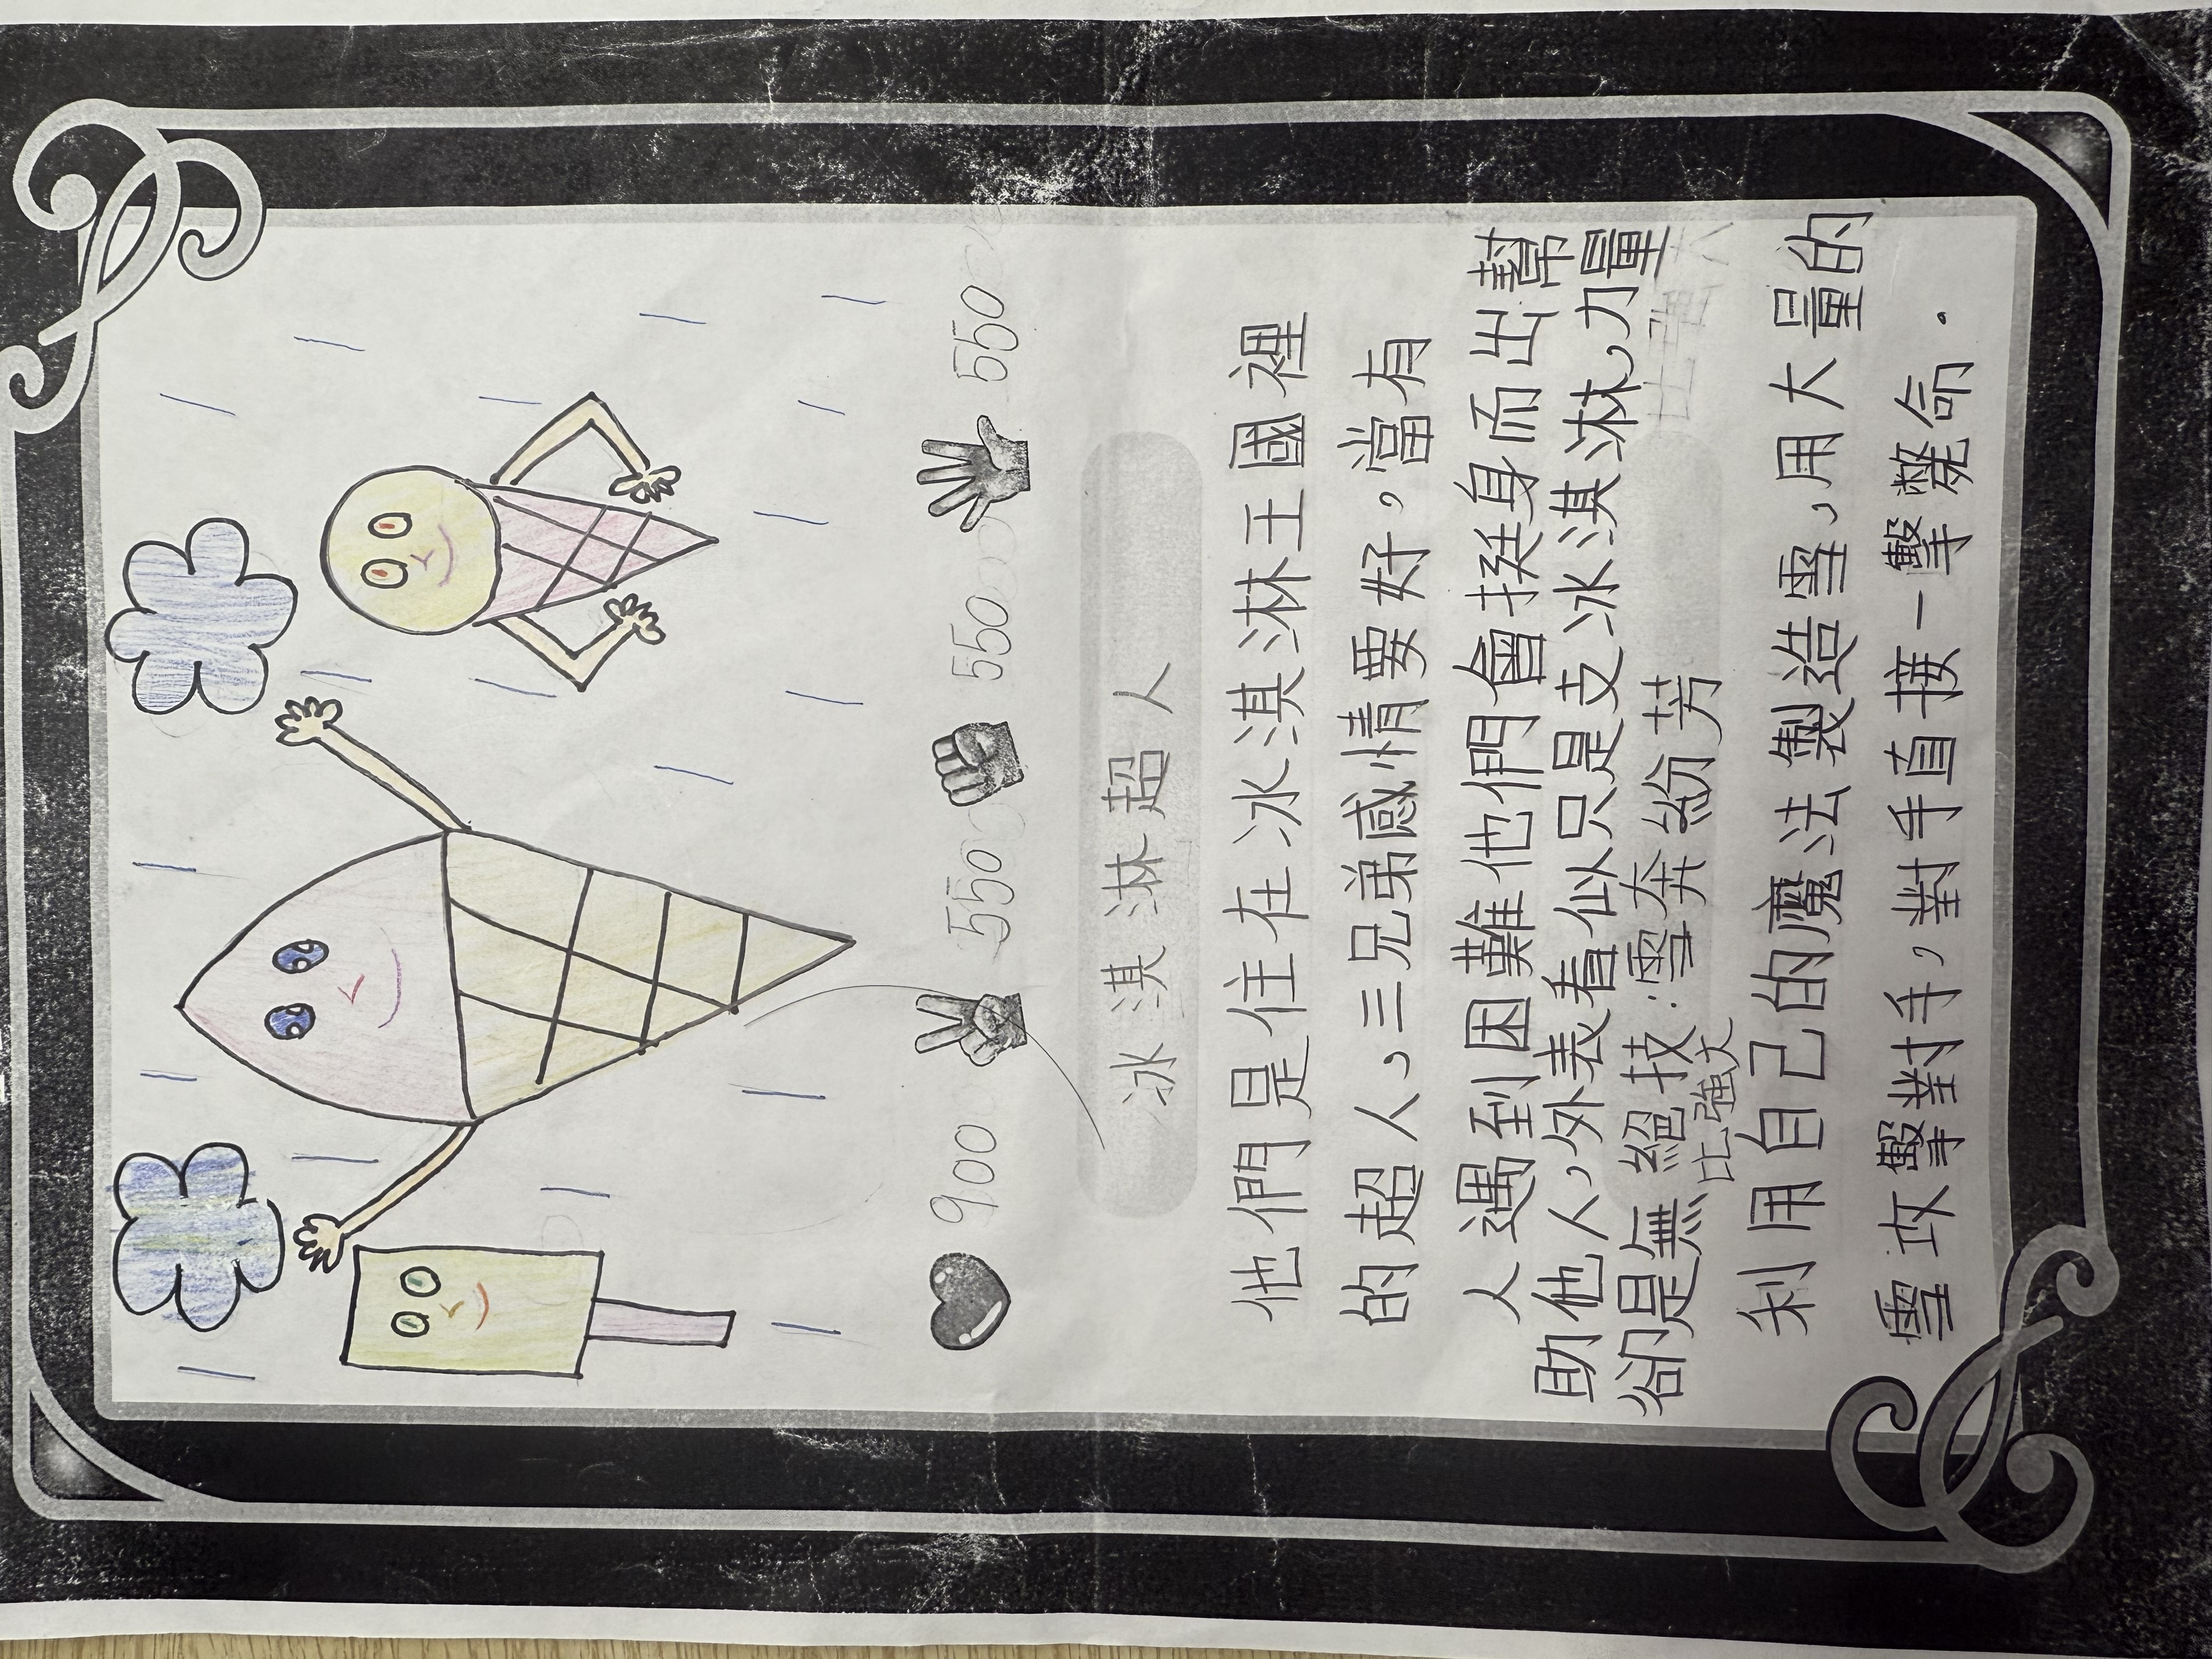 900 550 550 550
冰淇淋超人
他們是住在冰淇淋王國裡
的超人，三兄弟感情要好。當有
人遇到困難他們會挺身而出幫
助他人，外表看似只是支冰淇淋，力量
卻是無比強大
絕技：雪奔紛芳
利用自己的魔法製造雪，用大量的
雪攻擊對手，對手直接一擊斃命.